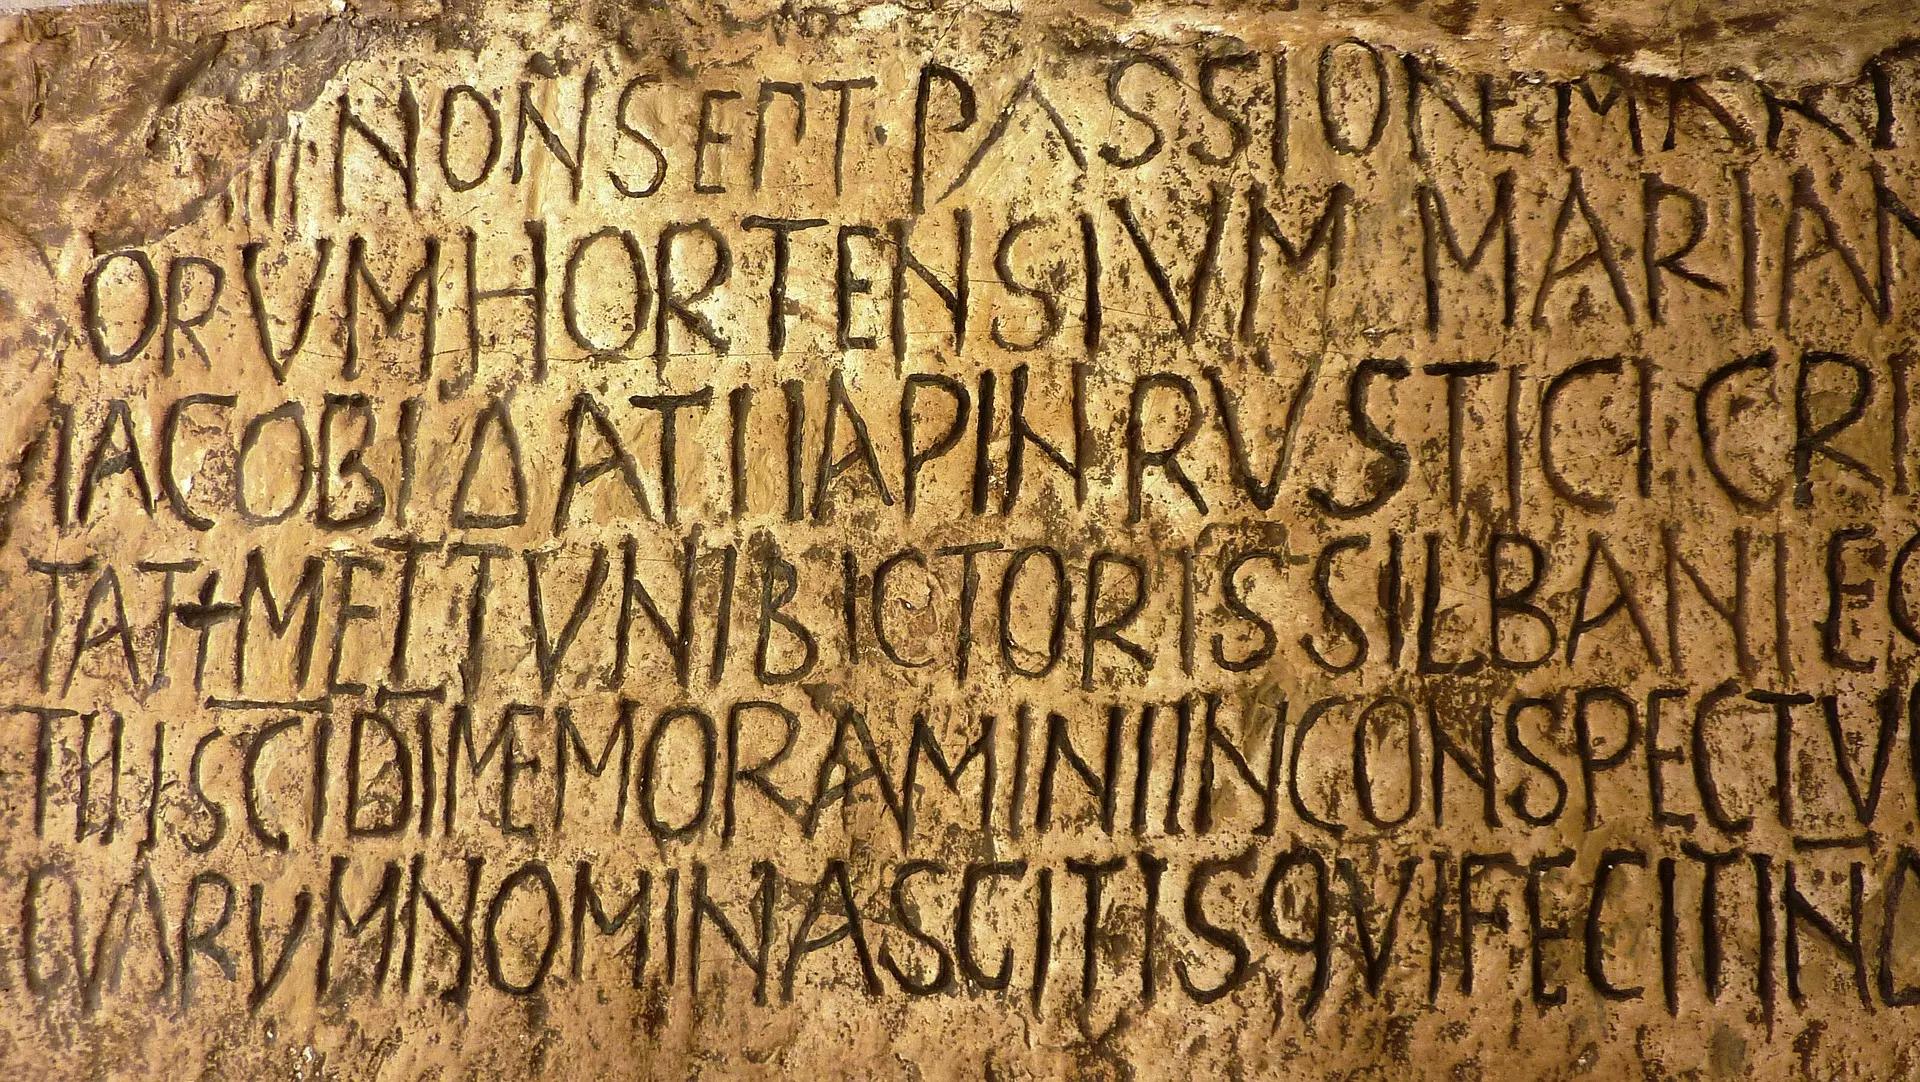 III NON SEPT · PASSIONE MART
ORVM HORTENSIVM MARIAN
IACOBI ΔATI IAPIN RVSTICI CRI
TAT+ METTVNI BICTORIS SILBANI EG
TII SCI DI MEMORAMINI IN CONSPECTV
QVARVM NOMINA SCITIS QVI FECIT IND